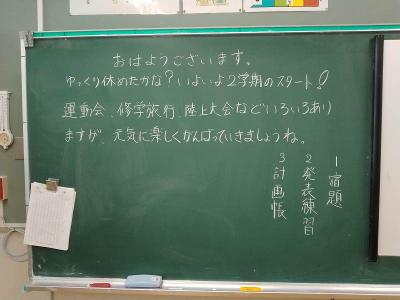 おはようございます。
ゆっくり休めたかな?いよいよ2学期のスタート!
運動会、修学旅行、陸上大会などいろいろあり
ますが、元気に楽しくがんばっていきましょうね。
1宿題
2発表練習
3計画帳